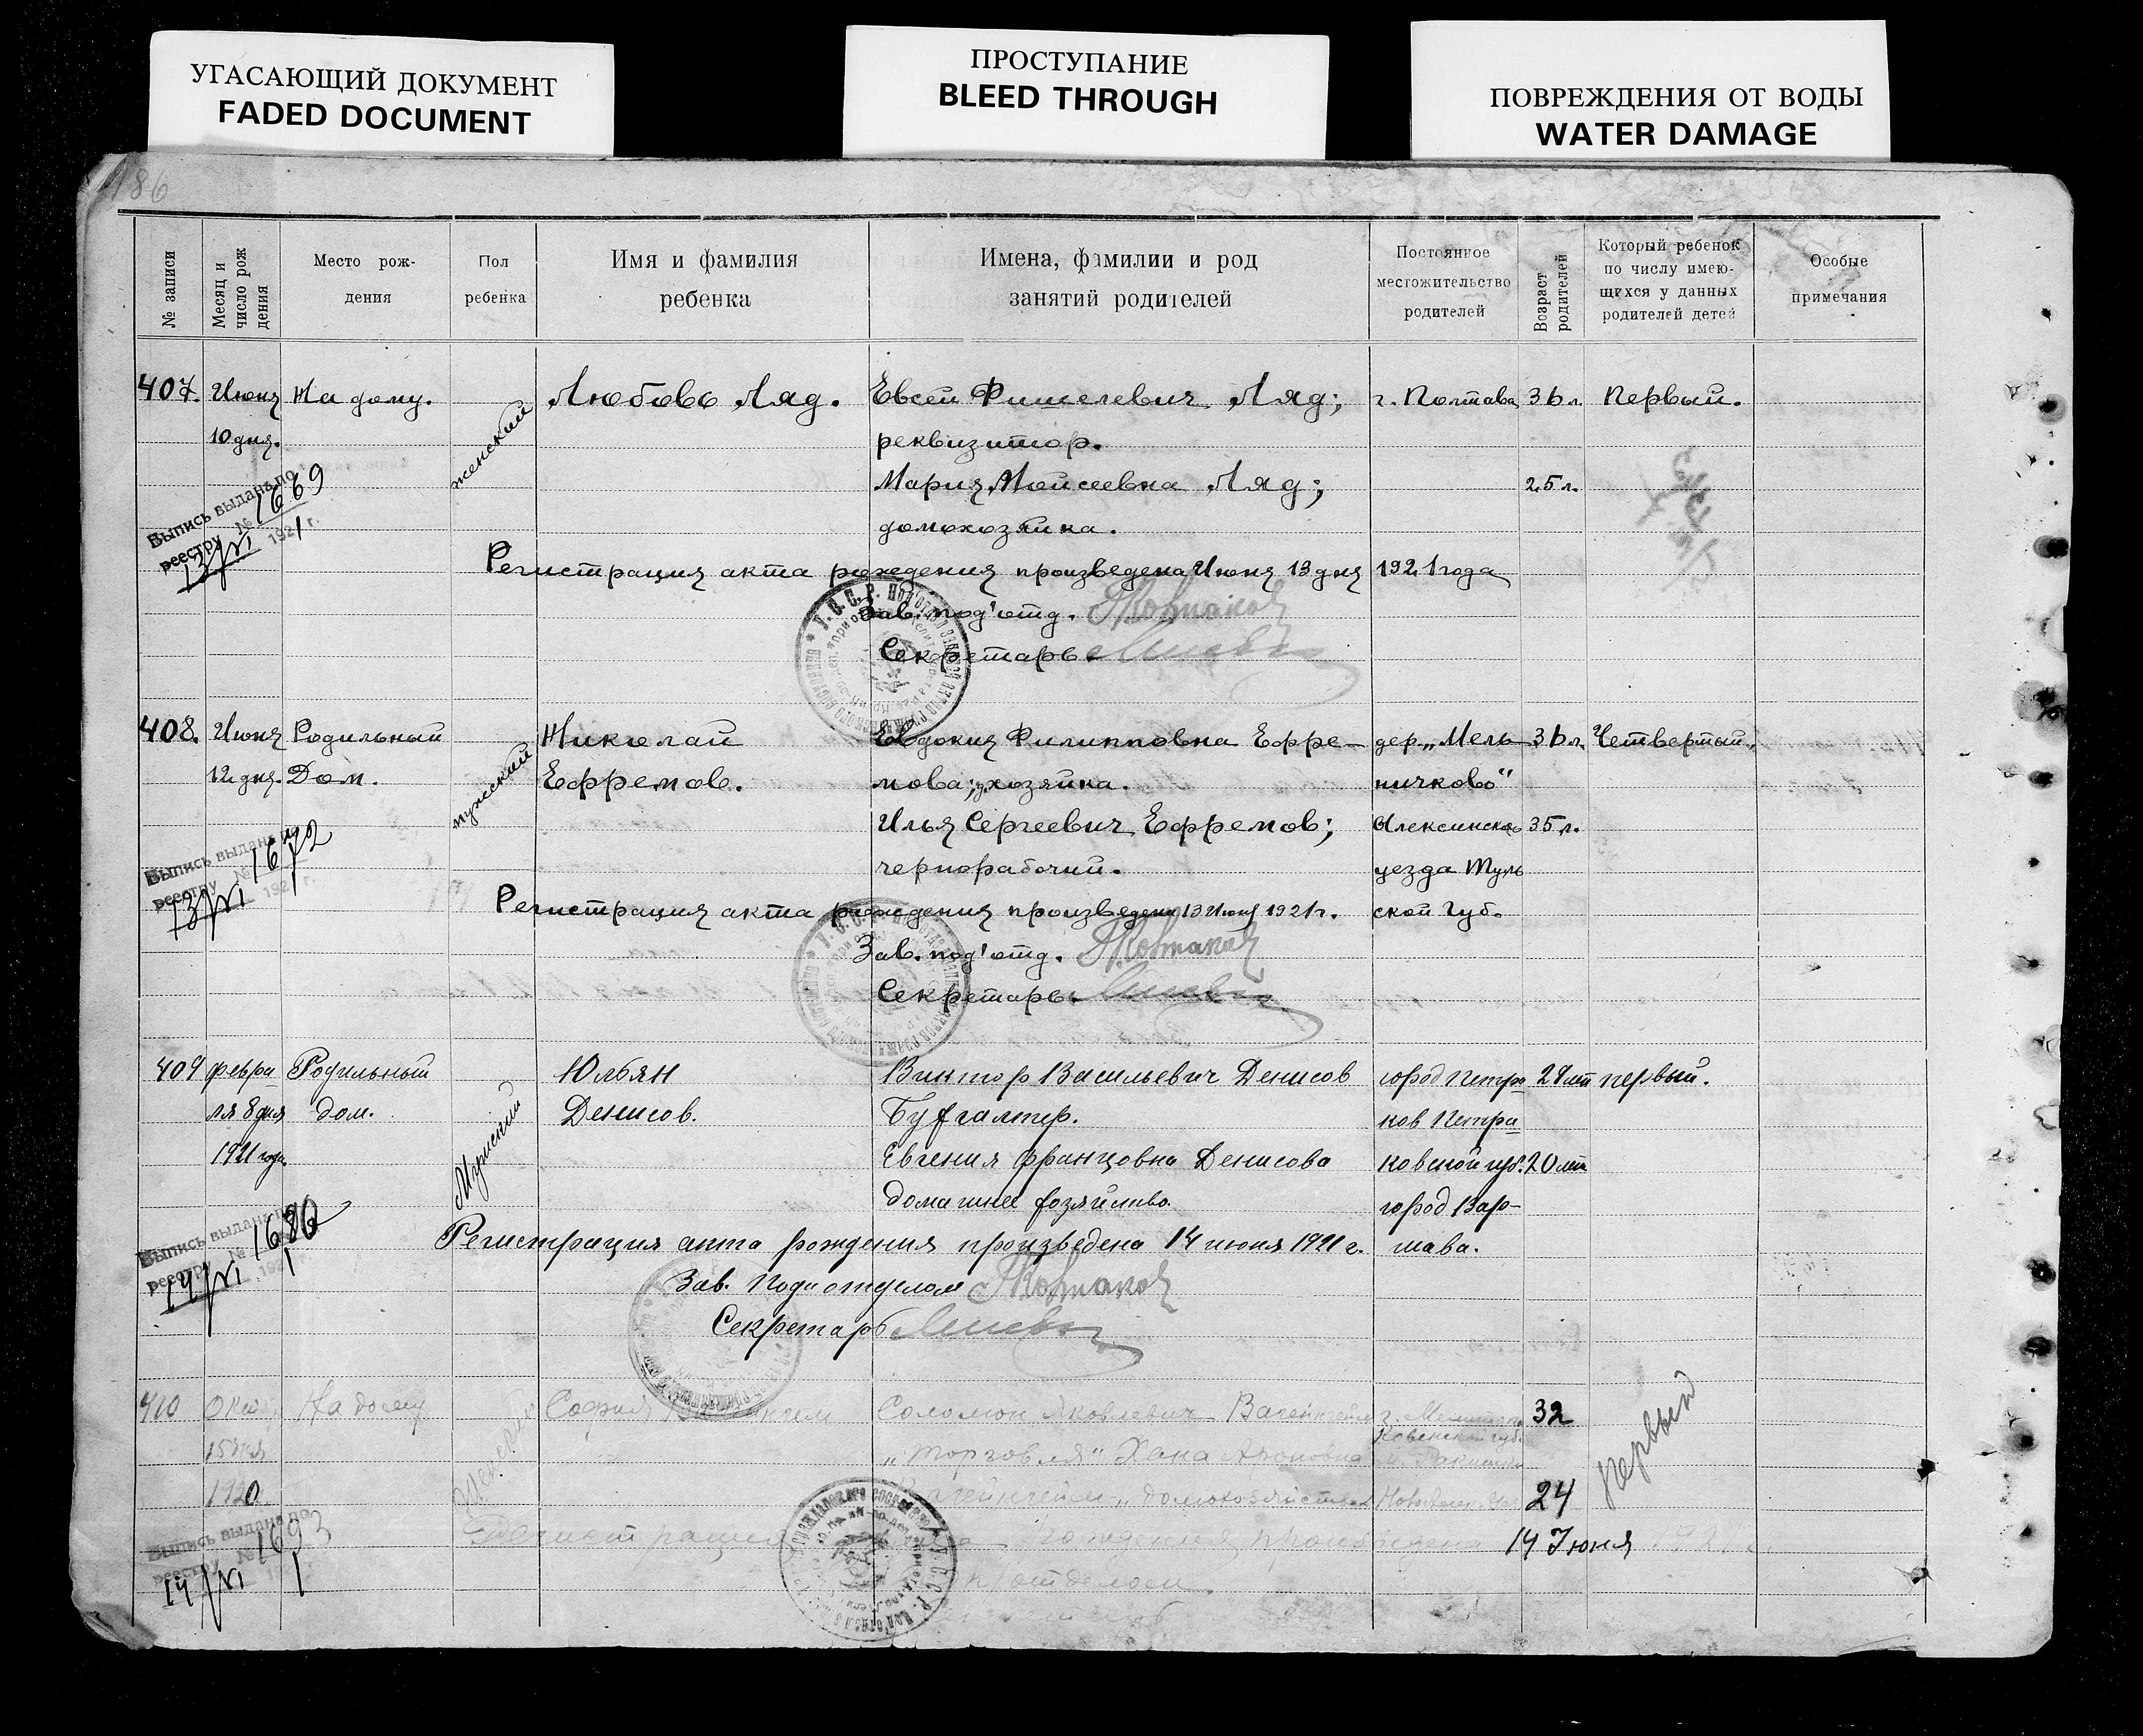 УГАСАЮЩИЙ ДОКУМЕНТ
FADED DOCUMENT
ПРОСТУПАНИЕ
BLEED THROUGH
ПОВРЕЖДЕНИЯ ОТ ВОДЫ
WATER DAMAGE
186
№ записи
Месяц и число рождения
Место рож-
дения
Пол
ребенка
Имя и фамилия
ребенка
Имена, фамилии и род
занятий родителей
Постоянное
местожительство
родителей
Возраст
родителей
Который ребенок
по числу имею-
щихся у данных
родителей детей
Особые
примечания
407. Июня На дому. женский Любовь Ляд. Евсей Фишелевич Ляд; г. Полтава 36 л. Первый.
10 дня. реквизитор.
Мария Мойсеевна Ляд; 25 л.
домохозяйка.
Выпись выдана по
реестру № 1669
13/VI 1921 г.
Регистрация акта рождения произведена Июня 13 дня 1921 года
Зав. под'отд.
Секретарь
408. Июня Родильный мужский Николай Евдокия Филипповна Ефре- дер. „Мель- 36 л. Четвертый.
12 дня. Дом. Ефремов. мова; хозяйка. ничково"
Илья Сергеевич Ефремов; Алексинско 35 л.
чернорабочий. уезда Туль
Выпись выдана по
реестру № 1672
13/VI 1921 г.
Регистрация акта рождения произведена 13 Июня 1921 г. ской Губ.
Зав. под'отд.
Секретарь
409 февра- Родильный Мужский Юльян Виктор Васильевич Денисов город Петро 28 лет первый.
ля 8 дня дом. Денисов. Бухгалтер. ков Петра
1921 года. Евгения Францовна Денисова ковской губ. 20 лет
домашнее хозяйство. город Вар-
Выпись выдана по
реестру № 1680
14/VI 1921 г.
Регистрация акта рождения произведена 14 июня 1921 г. шава.
Зав. Подотделом
Секретарь
410 На дому София Соломон Яковлевич 32 первый
15 дня „торговля" Хана Ароновна
1920 „домохозяйство" 24
Выпись выдана по
реестру № 1693
14/VI 1
Регистрация рождения произведена 14 Июня